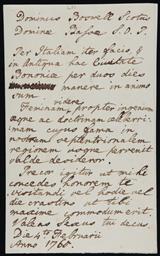 Dominus Boswell Scotus
Dominæ Bassæ S. D. P.
Per Italiam iter facio, &
in antiqua hac Civitate
Bononiæ per duos dies
manere in animo
videre
Feminam, propter ingenium
æque ac doctrinam celeberri:
:mam cujus fama in
nostram septentrionalem
regionem usque pervenit
valde desidero.
Precor igitur ut mihi
concedas honorem te
visitandi vel hodie vel
die crastino ut tibi
maxime commodum erit.
Valeas Sexus tui decus.
Die 4to Februarii
Anno 1765.